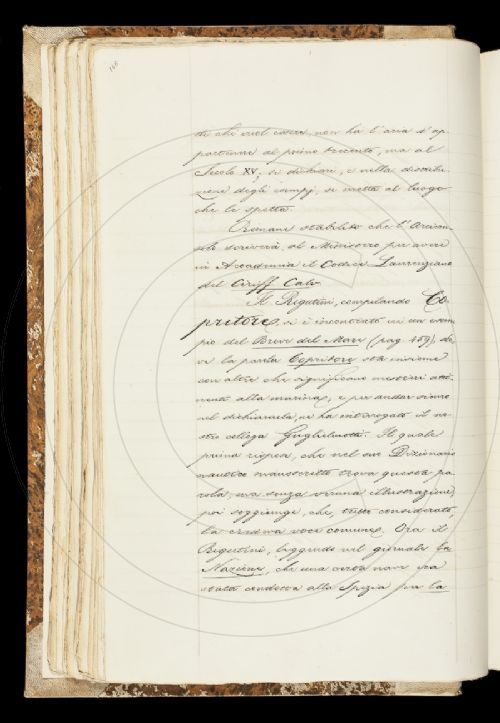 168
che vuol essere, non ha l'aria d'ap-
partenere al primo trecento, ma al
Secolo XV; si dichiari, e nella distribu-
zione degli esempj, si metta al luogo
che le spetta.
Rimane stabilito che l'Arcicon-
solo scriverà al Ministro per avere
in Accademia il Codice Laurenziano
del Ciriff. Calv.
Il Rigutini, compilando Co-
pritore, si è incontrato in un esem-
pio del Breve del Mare (pag. 459), do-
ve la parola Copritore sta insieme
con altre che significano mestieri atti-
nenti alla marina; e per andar sicuro
nel dichiararla, ne ha interrogato il no-
stro collega Guglielmotti. Il quale
prima rispose, che nel suo Dizionario
nautico manoscritto trova questa pa-
rola, ma senza veruna illustrazione;
poi soggiunge, che, tutto considerato,
la credeva voce comune. Ora il
Rigutini, leggendo nel giornale la
Nazione, che una certa nave era
stata condotta alla Spezia per la